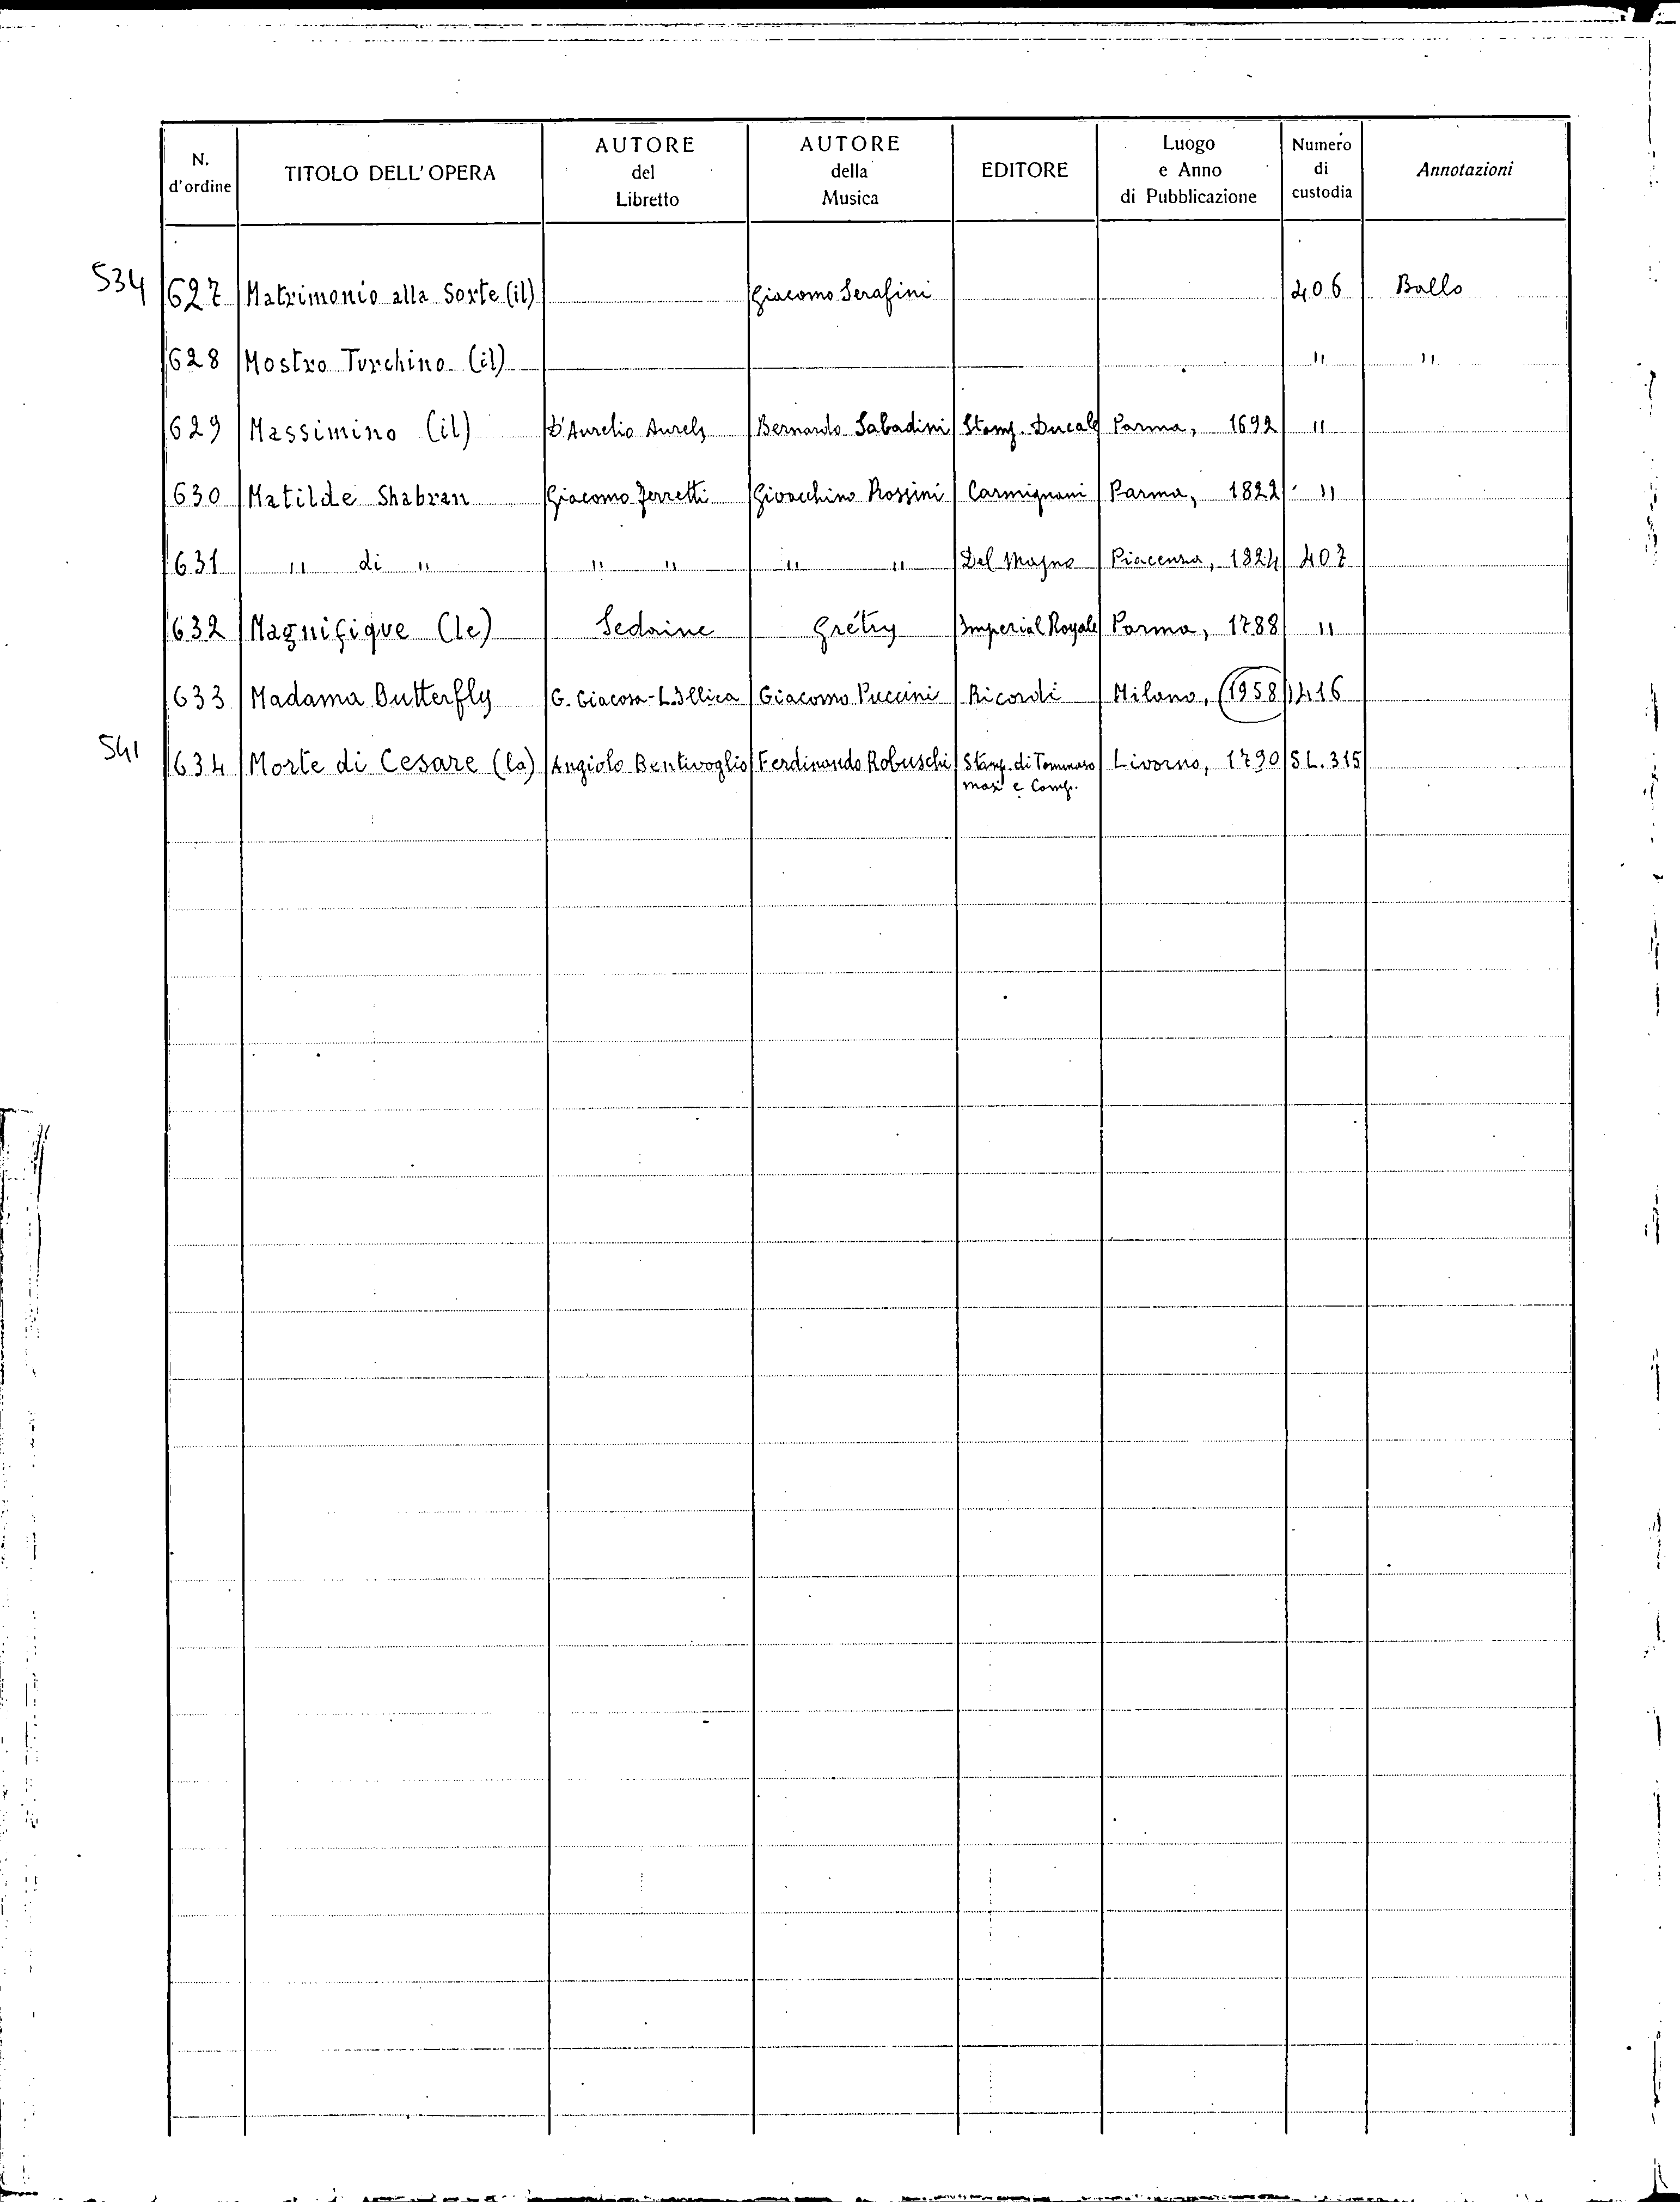 N. d'ordine TITOLO DELL'OPERA AUTORE del Libretto AUTORE della Musica EDITORE Luogo e Anno di Pubblicazione Numero di custodia Annotazioni
534 627 Matrimonio alla Sorte (il) Giacomo Serafini 406 Ballo
628 Mostro Turchino (il) " "
629 Massimino (il) D'Aurelio Aurelj Bernardo Sabadini Stamp. Ducale Parma, 1692 "
630 Matilde Shabran Giacomo Ferretti Giovacchino Rossini Carmignani Parma, 1822 "
631 " di " " " " " Del Majno Piacenza, 1824 407
632 Magnifique (le) Sedaine Grétry Imperial Royale Parma, 1788 "
633 Madama Butterfly G. Giacosa - L. Illica Giacomo Puccini Ricordi Milano, (1958) 416
541 634 Morte di Cesare (la) Angiolo Bentivoglio Ferdinando Robuschi Stamp. di Tommaso Livorno, 1790 S.L. 315
Masi e Comp.